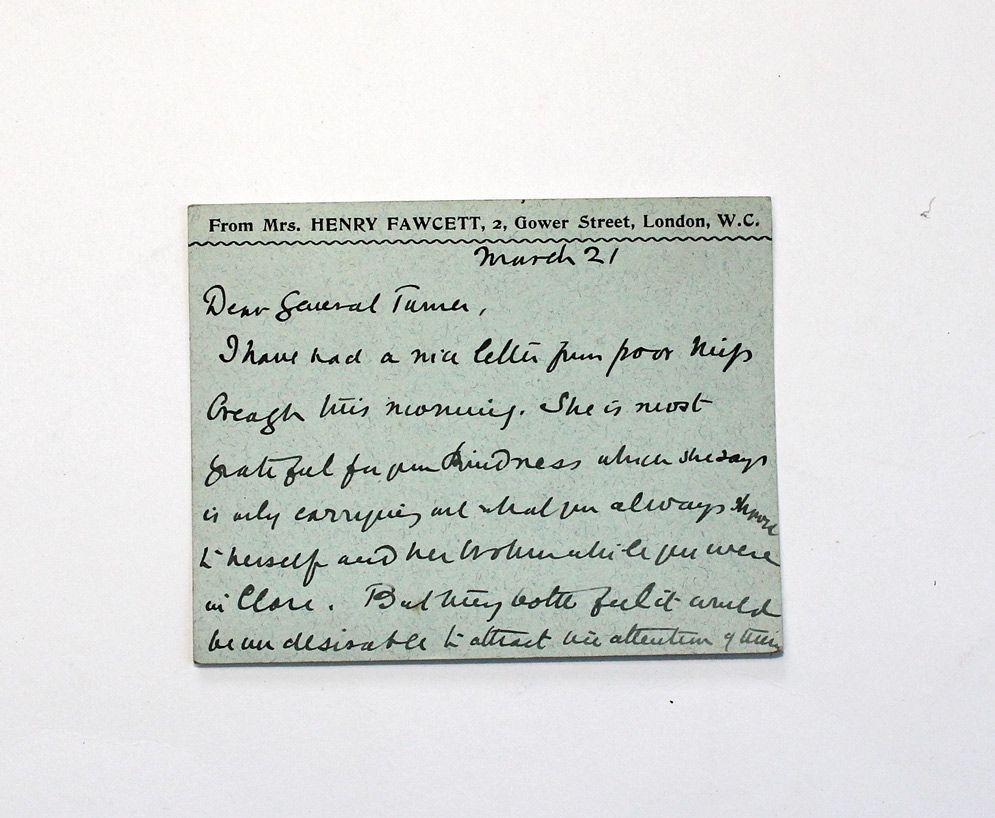 From Mrs. HENRY FAWCETT, 2, Gower Street, London, W.C.
March 21
Dear General Turner,
I have had a nice letter from poor Miss
Creagh this morning. She is most
grateful for your kindness which she says
is only carrying out what you always
to herself and her brother while you were
in Clare. But they both feel it would
be undesirable to attract the attention of